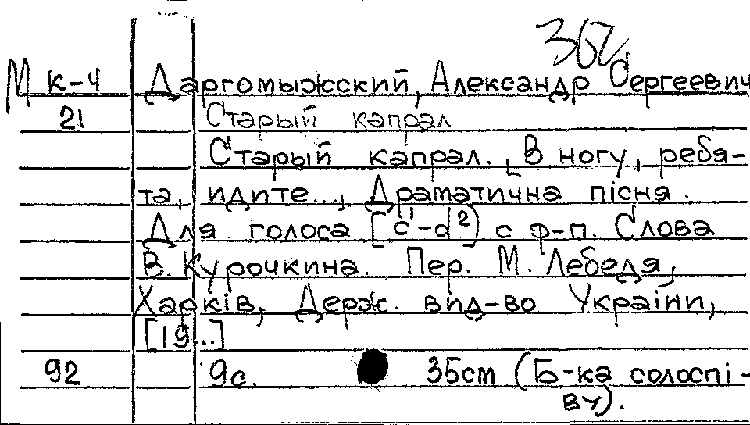 362
М к-4 Даргомыжский, Александр Сергеевич
21 Старый капрал
Старый капрал. „В ногу, ребя-
та, идите...„ Драматична пісня.
Для голоса [c¹-d²] с ф-п. Слова
В. Курочкина. Пер. М. Лебедя,
Харків, Держ. вид-во України,
[19...]
92 9с. 35см (Б-ка солоспі-
ву).